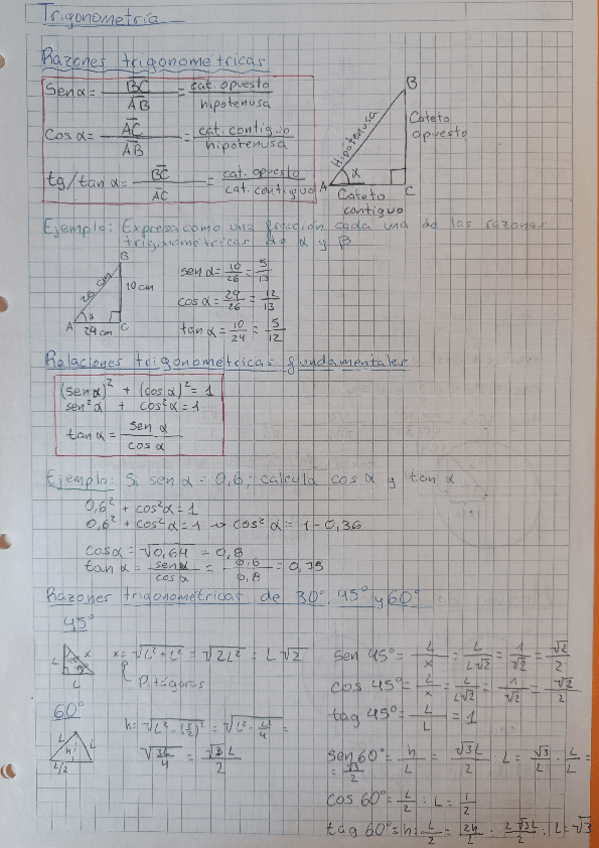 Trigonometría
Razones trigonométricas
Sen α = BC/AB = cat. opuesto/hipotenusa
Cos α = AC/AB = cat. contiguo/hipotenusa
tg/tan α = BC/AC = cat. opuesto/cat. contiguo
B
Hipotenusa
Cateto
opuesto
α
A
C
Cateto
contiguo
Ejemplo: Expresa como una fracción cada una de las razones
trigonométricas de α y β
B
26 cm
10 cm
A
C
24 cm
sen α = 10/26 = 5/13
cos α = 24/26 = 12/13
tan α = 10/24 = 5/12
Relaciones trigonométricas fundamentales
(sen α)² + (cos α)² = 1
sen² α + cos² α = 1
tan α = sen α/cos α
Ejemplo: Si sen α = 0,6; calcula cos α y tan α
0,6² + cos² α = 1
0,6² + cos² α = 1 → cos² α = 1 - 0,36
cos α = √0,64 = 0,8
tan α = sen α/cos α = 0,6/0,8 = 0,75
Razones trigonométricas de 30°, 45° y 60°
45°
L
x
L
x = √L² + L² = √2L² = L√2
Pitágoras
sen 45° = L/x = L/L√2 = 1/√2 = √2/2
cos 45° = L/x = L/L√2 = 1/√2 = √2/2
tag 45° = L/L = 1
60°
L
h
L
L/2
h = √L² - (L/2)² = √L² - L²/4 =
√3L/4 = √3 L/2
sen 60° = h/L = √3L/2 : L = √3/L · L/L =
= √3/2
cos 60° = L/2 : L = 1/2
tag 60° = h : L/2 = 2h/L : L = √3